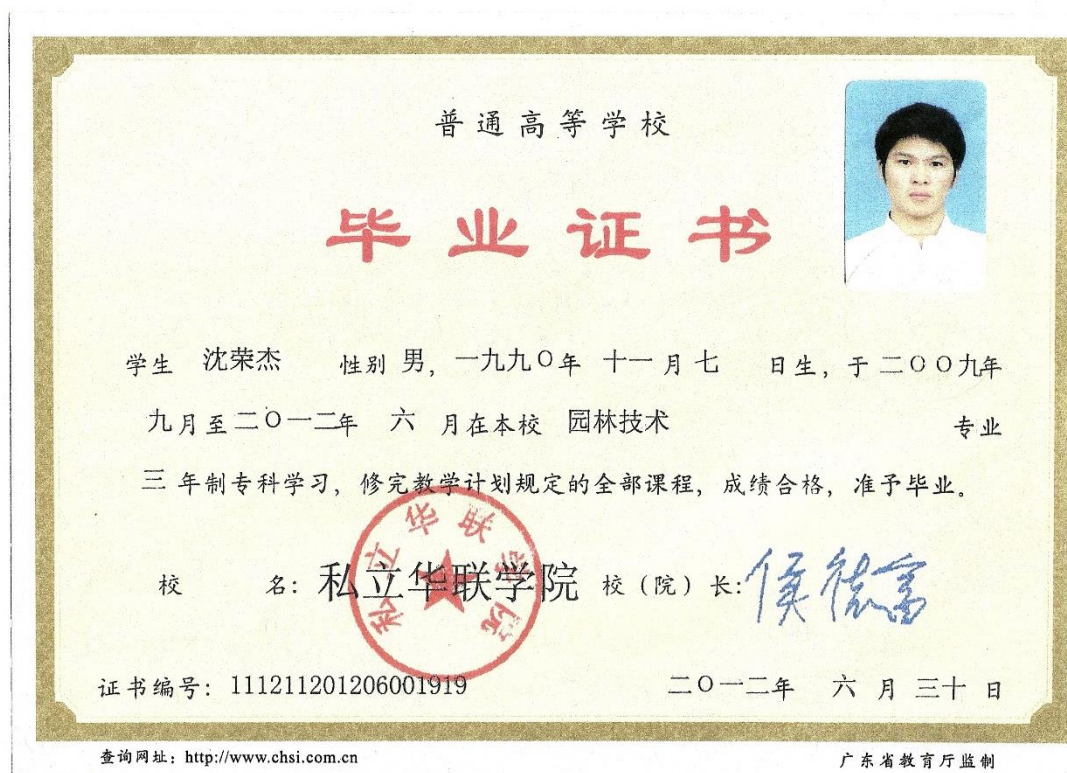 普通高等学校
毕业证书
学生 沈荣杰 性别 男，一九九〇年 十一月七 日生，于二〇〇九年
九月至二〇一二年 六 月在本校 园林技术 专业
三 年制专科学习，修完教学计划规定的全部课程，成绩合格，准予毕业。
校 名：私立华联学院 校（院）长：侯德富
私立华联学院
证书编号：111211201206001919 二〇一二年 六 月 三十 日
查询网址：http://www.chsi.com.cn 广东省教育厅监制